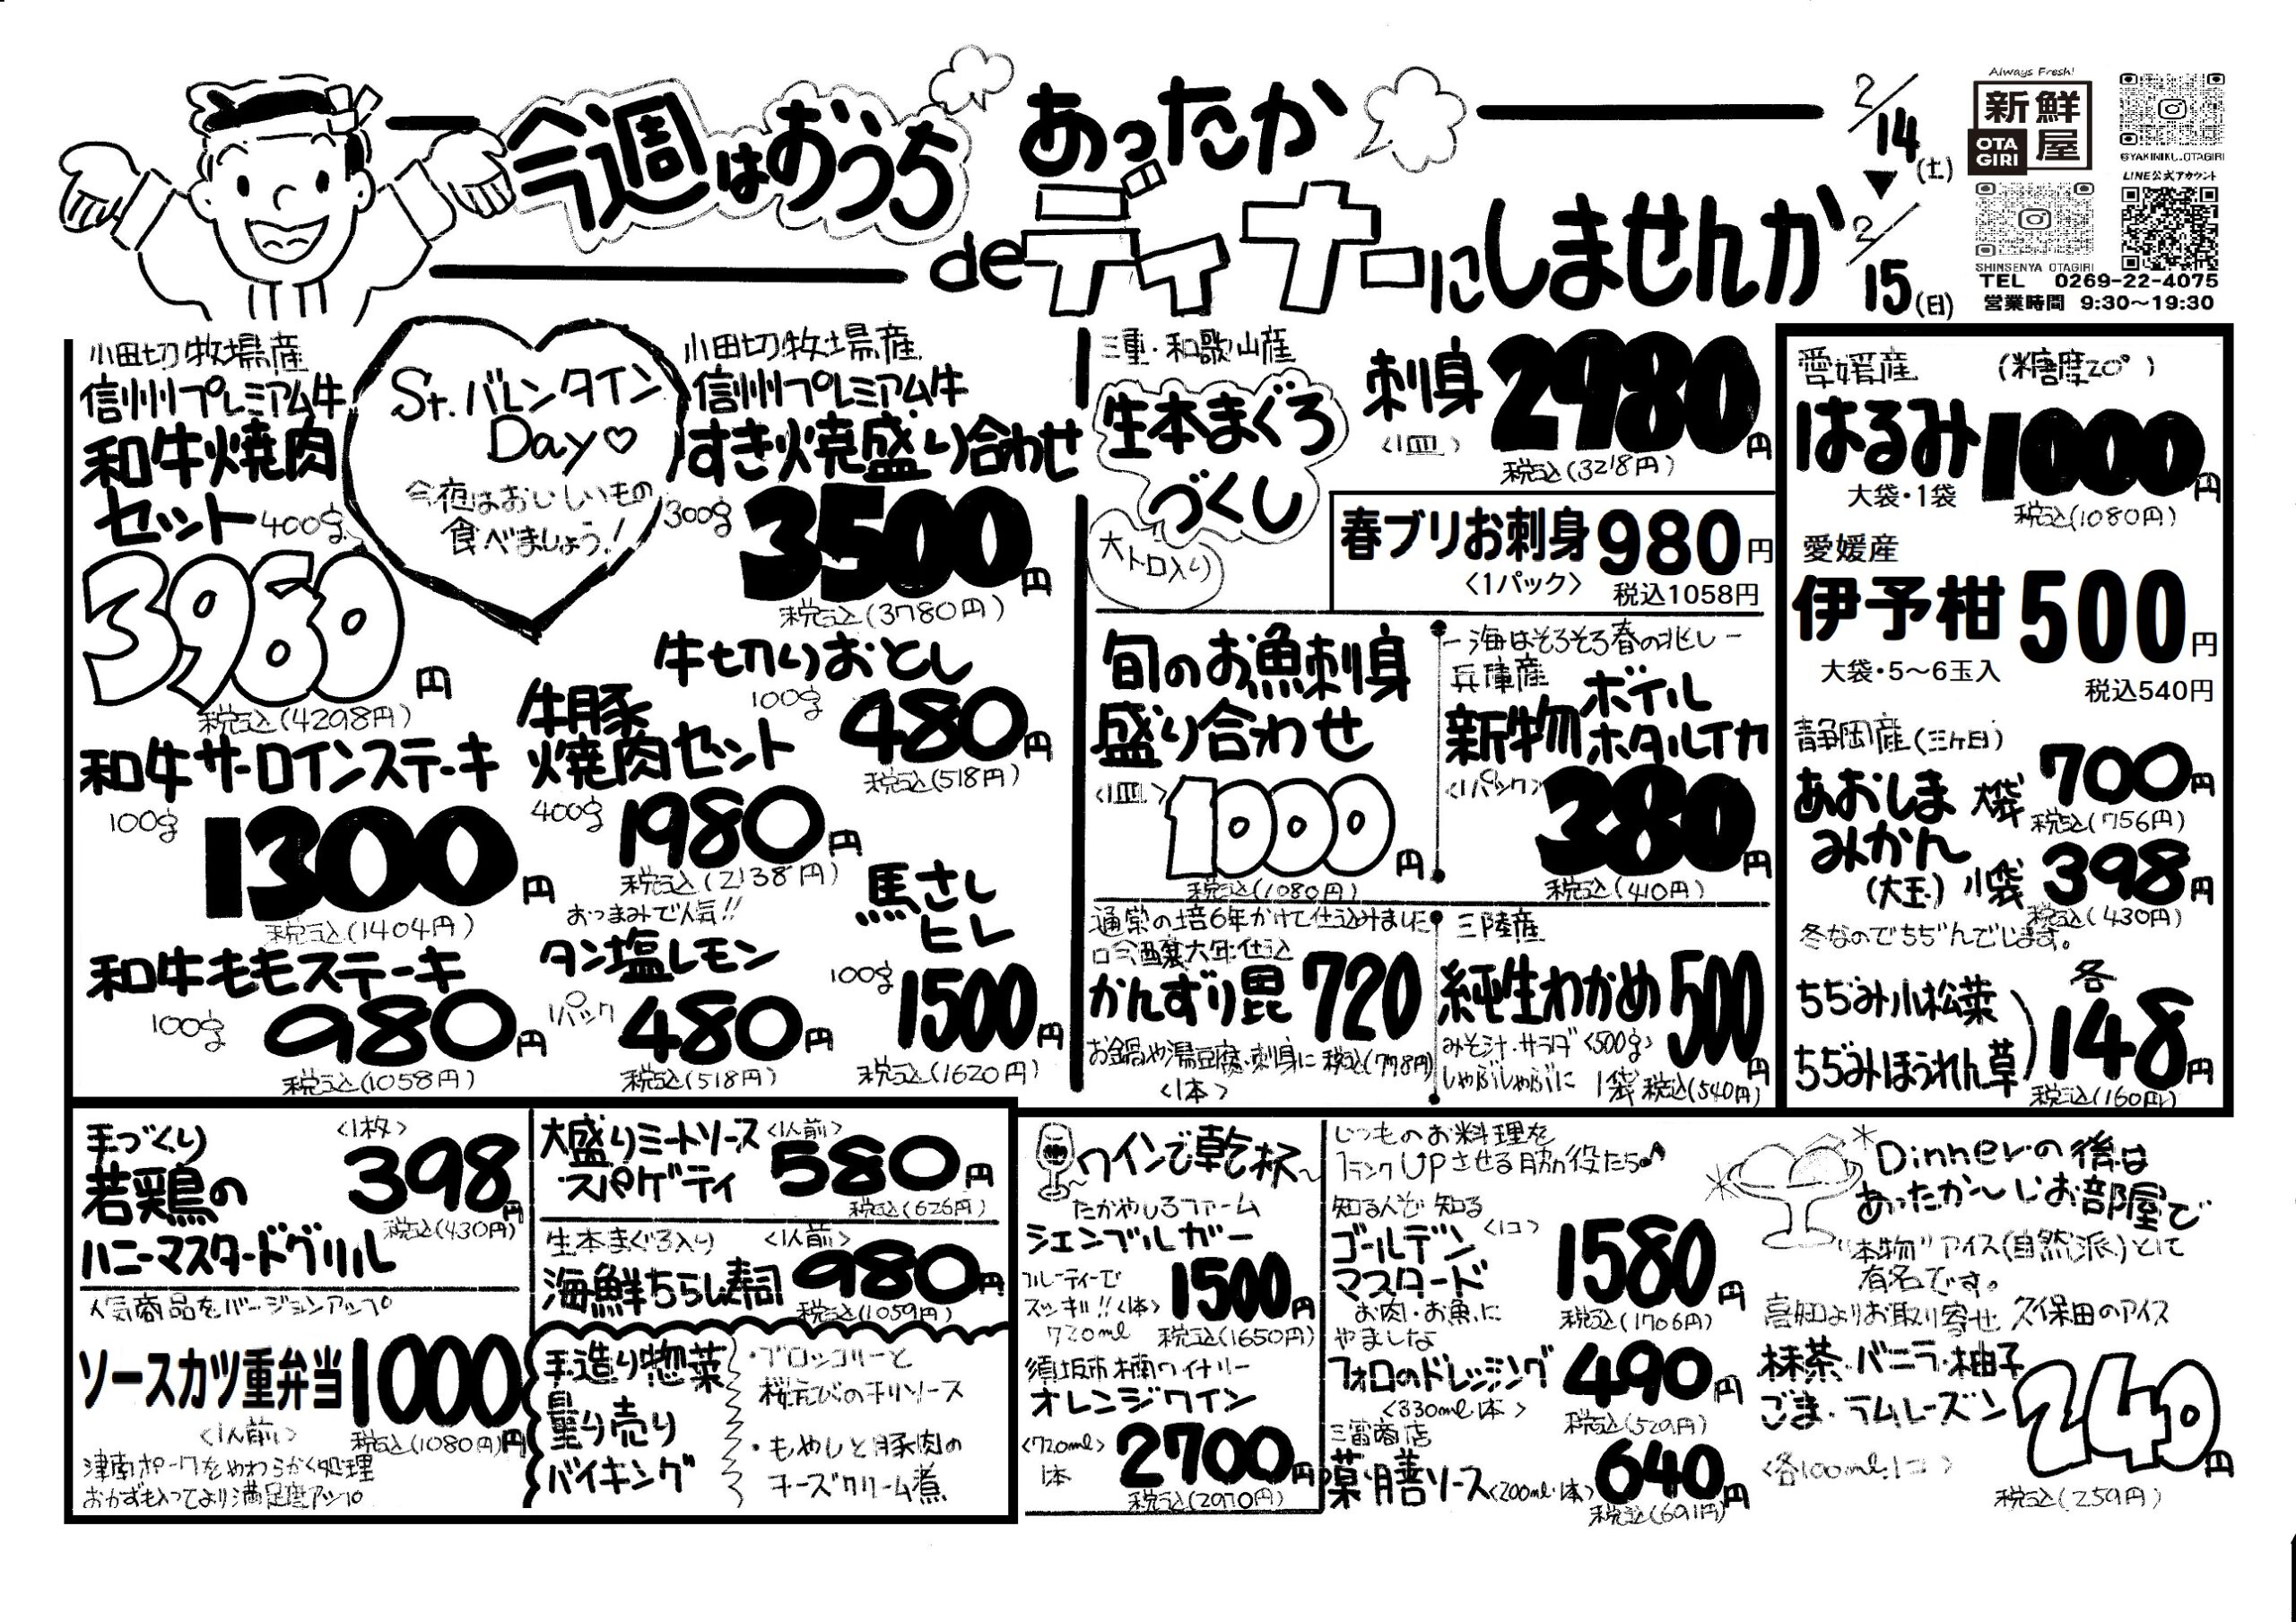 今週はおうち
あったか
deディナーにしませんか
2/14(土)
▼
2/15(日)
Always Fresh!
新鮮屋
OTAGIRI
@YAKINIKU.OTAGIRI
LINE公式アカウント
SHINSENYA OTAGIRI
TEL 0269-22-4075
営業時間 9:30～19:30
小田切牧場産
信州プレミアム牛
和牛焼肉
セット400g
3980円
税込(4298円)
St.バレンタイン
Day♡
今夜はおいしいもの
食べましょう!
小田切牧場産
信州プレミアム牛
すき焼盛り合わせ
300g
3500円
税込(3780円)
牛切りおとし
100g
480円
税込(518円)
和牛サーロインステーキ
100g
1300円
税込(1404円)
牛豚
焼肉セット
400g
1980円
税込(2138円)
和牛ももステーキ
100g
980円
税込(1058円)
おつまみで人気!!
タン塩レモン
1パック
480円
税込(518円)
馬さし
ヒレ
100g
1500円
税込(1620円)
三重・和歌山産
生本まぐろ
づくし
大トロ入り
刺身
<1皿>
2980円
税込(3218円)
春ブリお刺身
<1パック>
980円
税込1058円
旬のお魚刺身
盛り合わせ
<1皿>
1000円
税込(1080円)
ー海はそろそろ春の兆しー
兵庫産
新物ボイルホタルイカ
<1パック>
380円
税込(410円)
通常の倍6年かけて仕込みました
吟醸六年仕込
かんずり
720
お鍋や湯豆腐・刺身に 税込(778円)
<1本>
三陸産
純生わかめ
500円
みそ汁・サラダ<500g>
しゃぶしゃぶに 1袋 税込(540円)
愛媛産 (糖度20°)
はるみ
大袋・1袋
1000円
税込(1080円)
愛媛産
伊予柑
500円
大袋・5～6玉入
税込540円
静岡産(三ケ日)
あおしま
みかん
(大玉)
大袋 700円
税込(756円)
小袋 398円
税込(430円)
冬なのでちぢんでします。
ちぢみ小松菜
ちぢみほうれん草
各148円
税込(160円)
手づくり
若鶏の
ハニーマスタードグリル
<1枚>
398円
税込(430円)
人気商品をバージョンアップ
ソースカツ重弁当
<1人前>
1000円
税込(1080円)
津南ポークをやわらかく処理
おかずも入ってより満足度アップ
大盛りミートソース
スパゲティ
<1人前>
580円
税込(626円)
生本まぐろ入り
海鮮ちらし寿司
<1人前>
980円
税込(1059円)
手造り惣菜
量り売り
バイキング
・ブロッコリーと
桜えびのチリソース
・もやしと豚肉の
チーズクリーム煮
ワインで乾杯～
たかやしろファーム
シェンブルガー
フルーティーで
スッキリ!!<1本>
720ml
1500円
税込(1650円)
須坂市楠ワイナリー
オレンジワイン
<720ml>
1本
2700円
税込(2970円)
いつものお料理を
1ランクUPさせる脇役たち♪
知る人ぞ知る
ゴールデン
マスタード
<1コ>
1580円
お肉・お魚に
税込(1706円)
やましな
フォロのドレッシング
<330ml1本>
490円
税込(529円)
三富商店
薬膳ソース<200ml・1本>
640円
税込(691円)
Dinnerの後は
あったか～いお部屋で
"本物"アイス(自然派)として
有名です。
高知よりお取り寄せ 久保田のアイス
抹茶・バニラ・柚子
ごま・ラムレーズン
<各100ml・1コ>
240円
税込(259円)